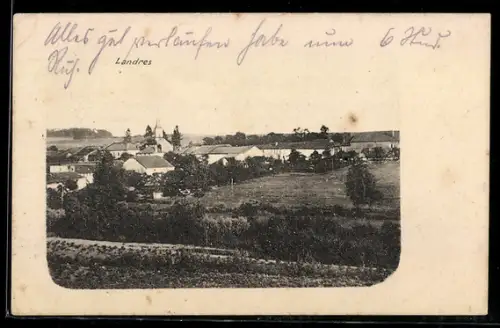 Alles gut verlaufen habe um 6 Uhr
Ruh,
Landres